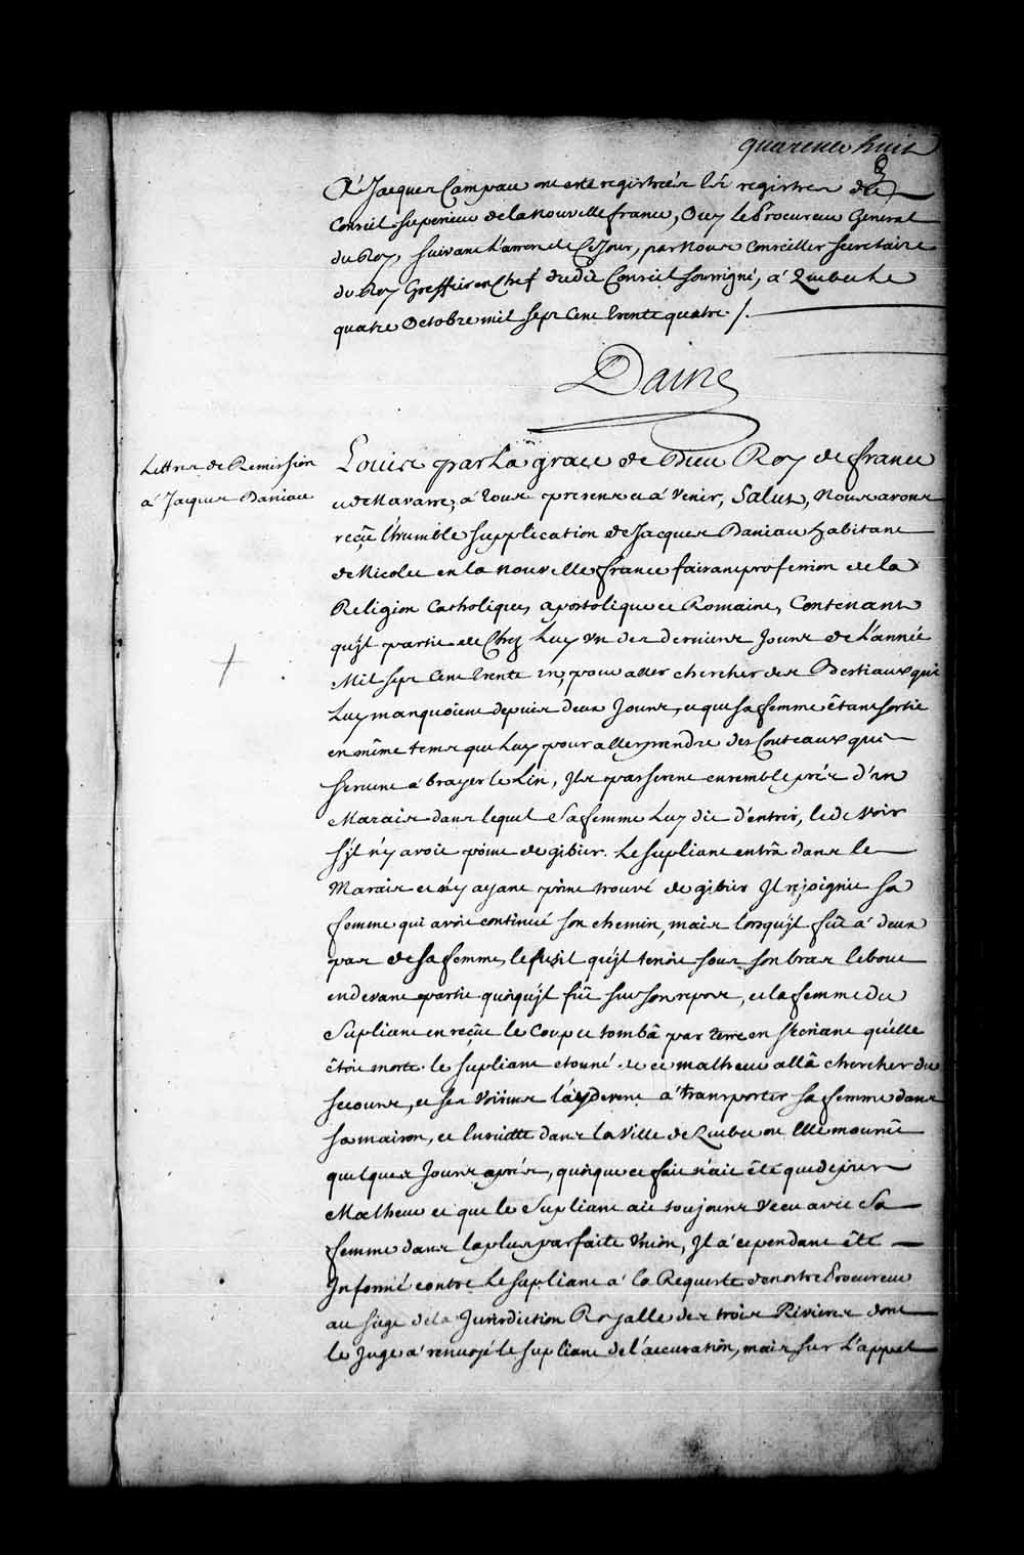 quarente huit
A Jacques Campau ont esté registréés és registres du
Conseil superieur de la nouvelle france, Ouy le Procureur General
du Roy, suivant L'arrest de Ce Jour, par Nous Conseiller Secretaire
du Roy Greffier en Chef dudit Conseil soussigné, á Quebec Le
quatre Octobre mil sept Cent trente quatre ./.
Daine
Lettres de Remission
á Jacques Daniau
Louis par La grace de Dieu Roy de france
et de Navarre, á tous presens et á Venir, Salut, Nous avons
reçû l'humble Supplication de Jacques Daniau habitant
de Nicolet en la nouvelle france faisant profession de la
Religion Catholique, apostolique et Romaine, Contenant
qu'jl partit de Chez Luy Vn des derniers Jours de L'année
Mil sept Cent trente un, pour aller chercher des Bestiaux qui
Luy manquoient depuis deux Jours, et que sa femme êtant sortie
en même tems que Luy pour aller prendre des Couteaux qui
servent á brayer le Lin, Jls passerent ensemble prés d'un
Marais dans lequel Sa femme Luy dit d'entrer, et de Voir
s'jl n'y avoit point de gibier. Le supliant entrâ dans le
Marais et n'y ayant point trouvé de gibier Jl rejoignit sa
femme qui avoit continué son chemin, mais lorsqu'jl fût á deux
pas de sa femme, le fusil qu'jl tenoit sous son bras le bout
en devant partit quoiqu'jl fût sur son repos, et la femme du
Supliant en reçût le Coup et tombâ par terre en s'écriant qu'elle
êtoit morte. le supliant etonné de ce malheur allâ chercher du
secours, et ses Voisins l'ayderent á transporter sa femme dans
sa maison, et ensuitte dans la Ville de Quebec ou Elle mourût
quelques Jours aprés, quoique ce fait n'ait êté que de pur
Malheur et que le Supliant ait toujours Vecu avec Sa
femme dans la plus parfaite Vnion, Jl á cependant êté
Informé contre Le supliant á la Requeste de nostre Procureur
au siege de la Jurisdiction Royalle des trois Rivieres dont
le Juge á renvoyé le supliant de l'accusation, mais sur L'appel